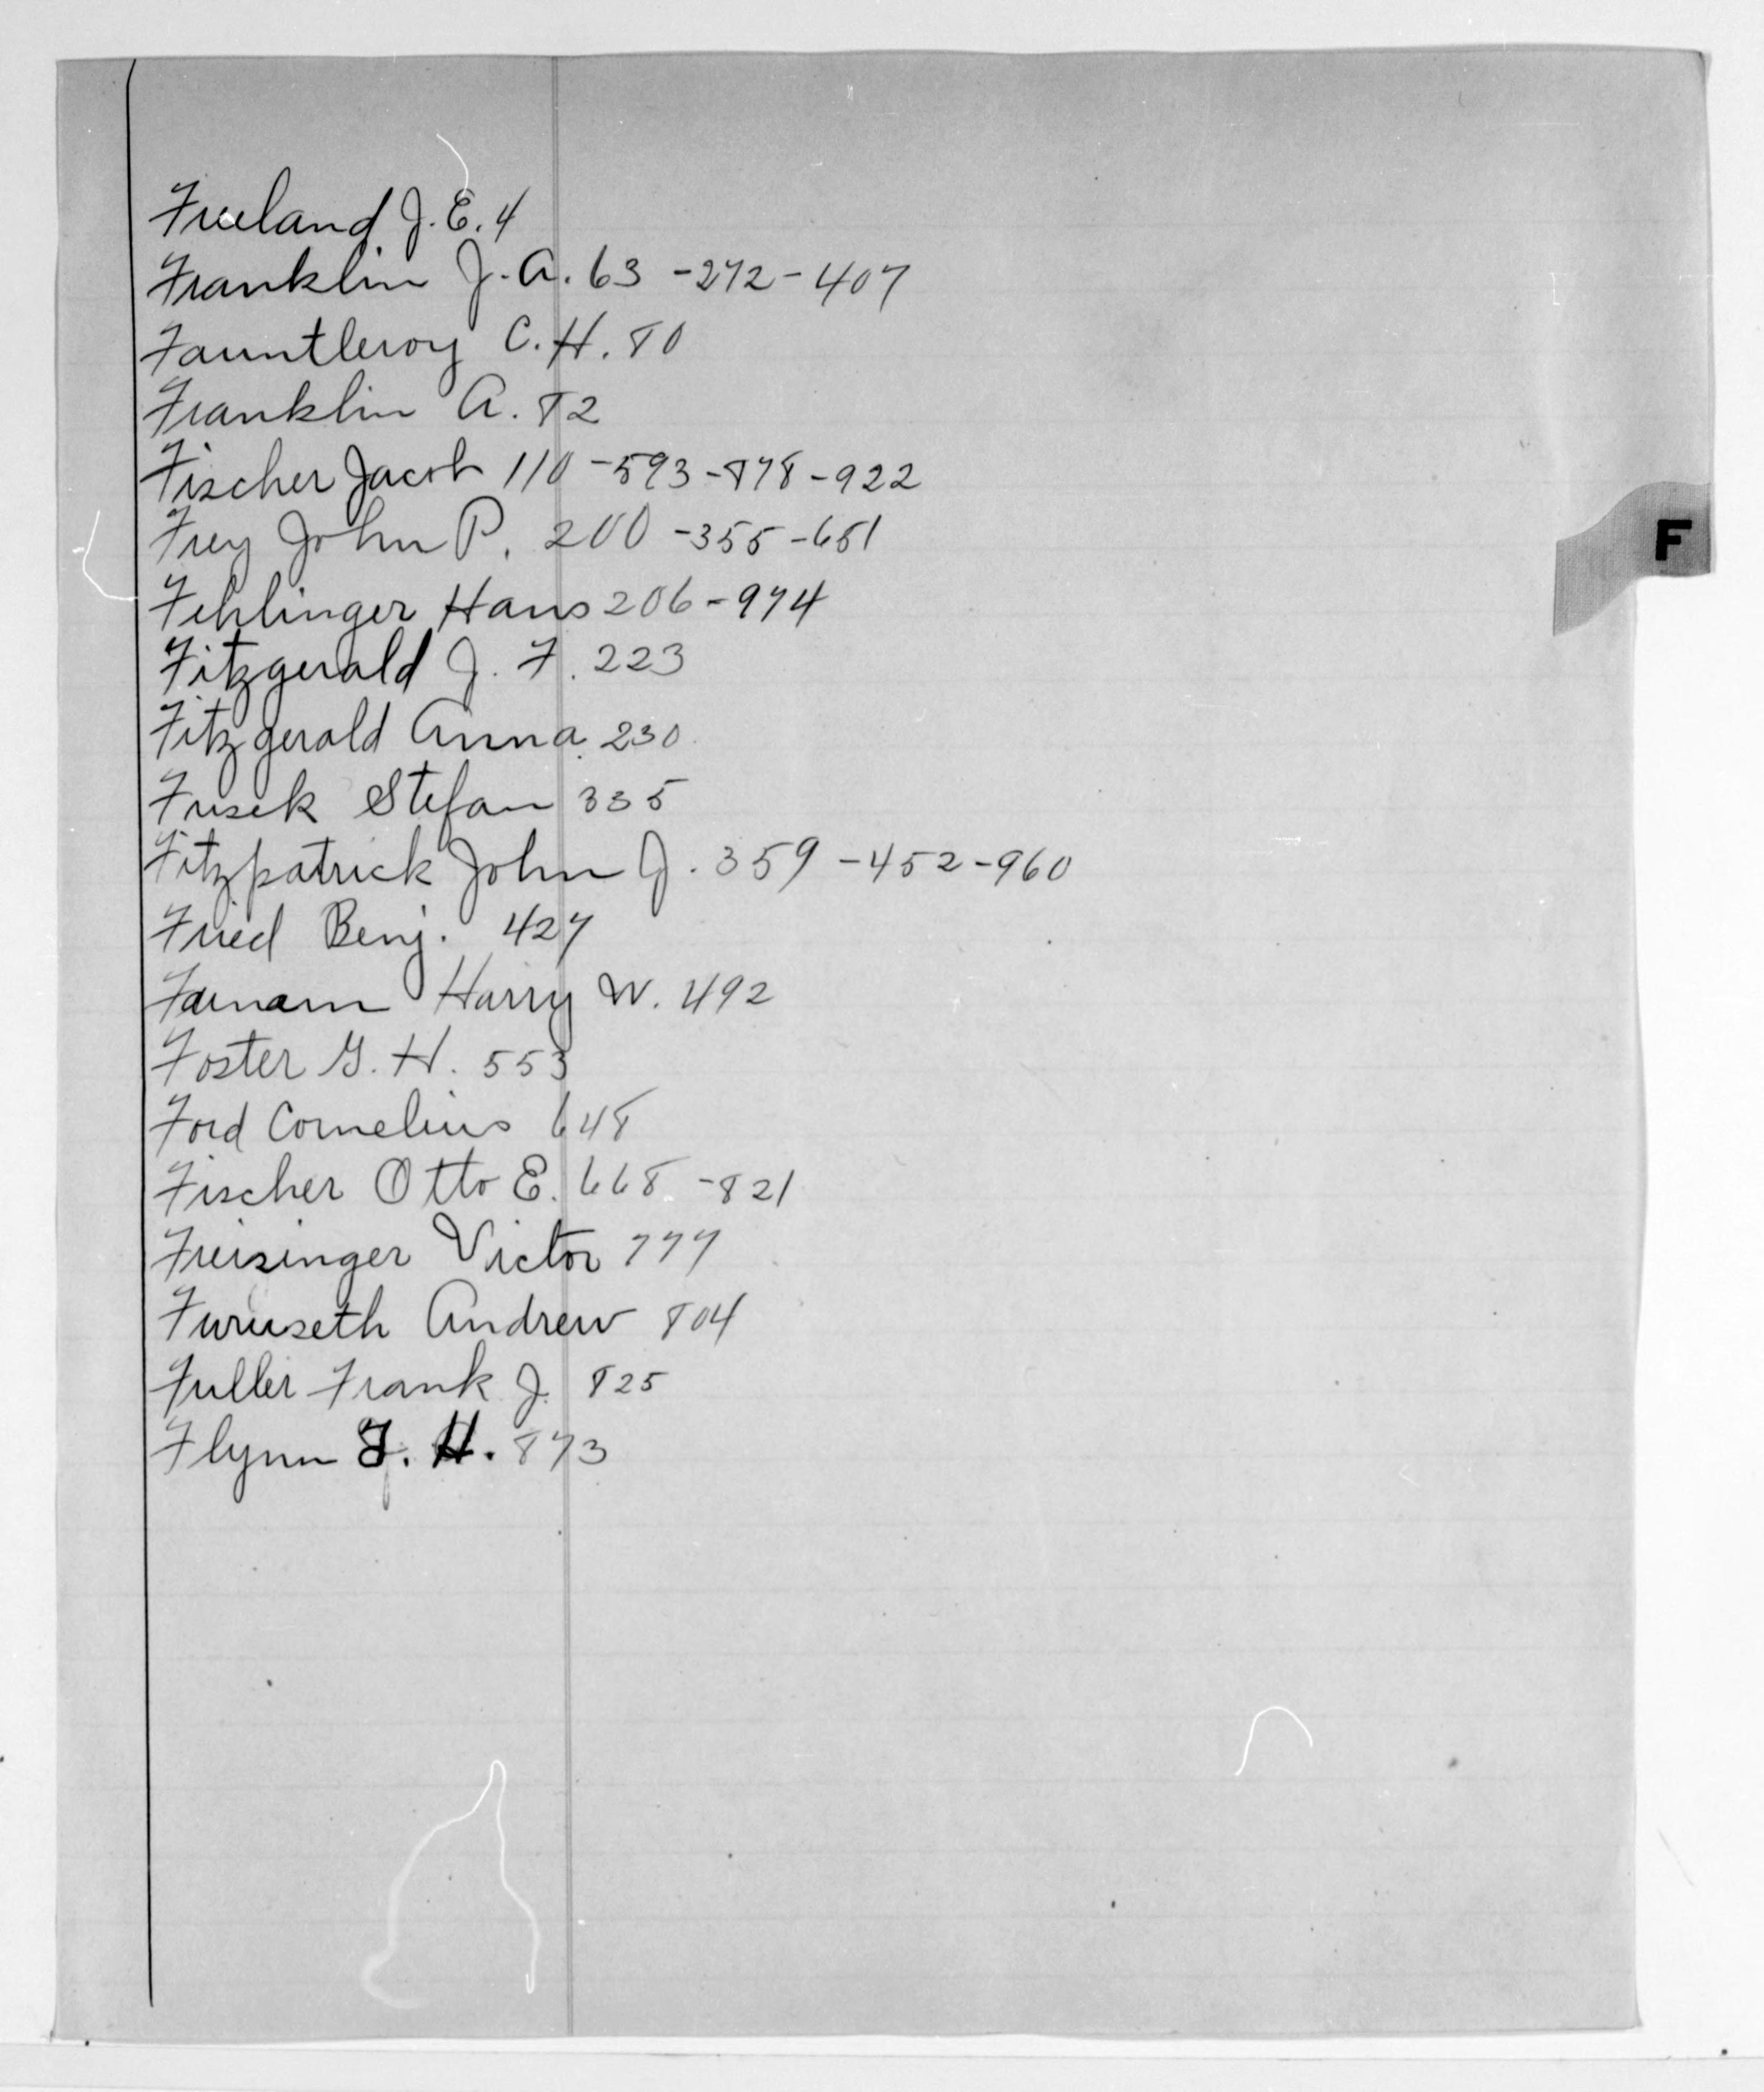 Freeland J. E. 4
Franklin J. A. 63 - 272 - 407
Fauntleroy C. H. 80
Franklin A. 82
Fischer Jacob 110 - 593 - 878 - 922
F
Frey John P. 200 - 355 - 651
Fehlinger Hans 206 - 974
Fitzgerald J. F. 223
Fitzgerald Anna 230
Fusek Stefan 335
Fitzpatrick John J. 359 - 452 - 960
Fried Benj. 427
Farnam Harry W. 492
Foster G. H. 553
Ford Cornelius 648
Fischer Otto E. 668 - 821
Freisinger Victor 777
Furuseth Andrew 804
Fuller Frank J. 825
Flynn F. H. 873